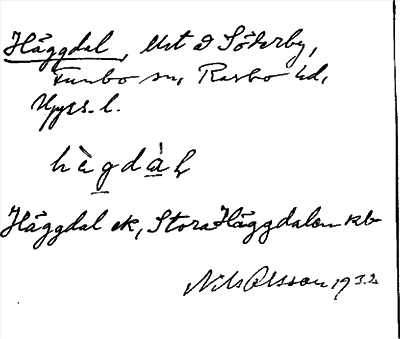 Häggdal, Utt å Söderby,
Funbo sn, Rasbo hd,
Upps. l.
hègdàl
Häggdal ek, Stora Häggdalen kb
Nils Olsson 1932